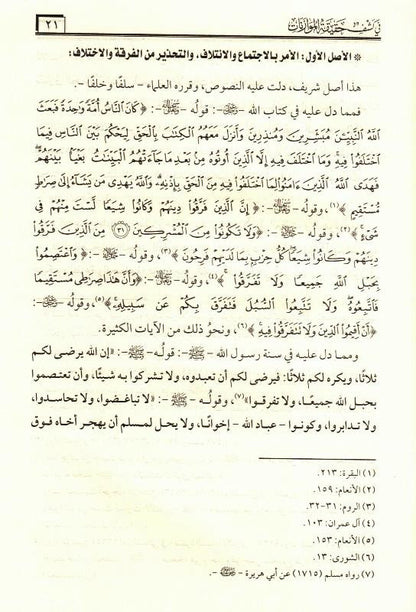 في كشف حقيقة الموازنات
٢١
* الأصل الأول: الأمر بالاجتماع والائتلاف، والتحذير من الفرقة والاختلاف:
هذا أصل شريف، دلت عليه النصوص، وقرره العلماء - سلفًا وخلفًا -.
فمما دل عليه في كتاب الله - ﷻ -: قوله - ﷻ -: ﴿كَانَ النَّاسُ أُمَّةً وَاحِدَةً فَبَعَثَ
اللَّهُ النَّبِيِّينَ مُبَشِّرِينَ وَمُنذِرِينَ وَأَنزَلَ مَعَهُمُ الْكِتَابَ بِالْحَقِّ لِيَحْكُمَ بَيْنَ النَّاسِ فِيمَا
اخْتَلَفُوا فِيهِ وَمَا اخْتَلَفَ فِيهِ إِلَّا الَّذِينَ أُوتُوهُ مِن بَعْدِ مَا جَاءَتْهُمُ الْبَيِّنَاتُ بَغْيًا بَيْنَهُمْ
فَهَدَى اللَّهُ الَّذِينَ آمَنُوا لِمَا اخْتَلَفُوا فِيهِ مِنَ الْحَقِّ بِإِذْنِهِ وَاللَّهُ يَهْدِي مَن يَشَاءُ إِلَى صِرَاطٍ
مُّسْتَقِيمٍ﴾(١)، وقوله - ﷻ -: ﴿إِنَّ الَّذِينَ فَرَّقُوا دِينَهُمْ وَكَانُوا شِيَعًا لَّسْتَ مِنْهُمْ فِي
شَيْءٍ﴾(٢)، وقوله - ﷻ -: ﴿وَلَا تَكُونُوا مِنَ الْمُشْرِكِينَ ﴿٣١﴾ مِنَ الَّذِينَ فَرَّقُوا
دِينَهُمْ وَكَانُوا شِيَعًا كُلُّ حِزْبٍ بِمَا لَدَيْهِمْ فَرِحُونَ﴾(٣)، وقوله - ﷻ -: ﴿وَاعْتَصِمُوا
بِحَبْلِ اللَّهِ جَمِيعًا وَلَا تَفَرَّقُوا﴾(٤)، وقوله - ﷻ -: ﴿وَأَنَّ هَذَا صِرَاطِي مُسْتَقِيمًا
فَاتَّبِعُوهُ وَلَا تَتَّبِعُوا السُّبُلَ فَتَفَرَّقَ بِكُمْ عَن سَبِيلِهِ﴾(٥)، وقوله - ﷻ -:
﴿أَنْ أَقِيمُوا الدِّينَ وَلَا تَتَفَرَّقُوا فِيهِ﴾(٦)، ونحوُ ذلك من الآيات الكثيرة.
ومما دل عليه في سنة رسول الله - ﷺ -: قوله - ﷺ -: «إن الله يرضى لكم
ثلاثًا، ويكره لكم ثلاثًا: فيرضى لكم أن تعبدوه، ولا تشركوا به شيئًا، وأن تعتصموا
بحبل الله جميعًا، ولا تفرقوا»(٧)، وقوله - ﷺ -: «لا تباغضوا، ولا تحاسدوا،
ولا تدابروا، وكونوا - عباد الله - إخوانًا، ولا يحل لمسلم أن يهجر أخاه فوق
(١) البقرة: ٢١٣.
(٢) الأنعام: ١٥٩.
(٣) الروم: ٣١-٣٢.
(٤) آل عمران: ١٠٣.
(٥) الأنعام: ١٥٣.
(٦) الشورى: ١٣.
(٧) رواه مسلم (١٧١٥) عن أبي هريرة - رضي الله عنه -.